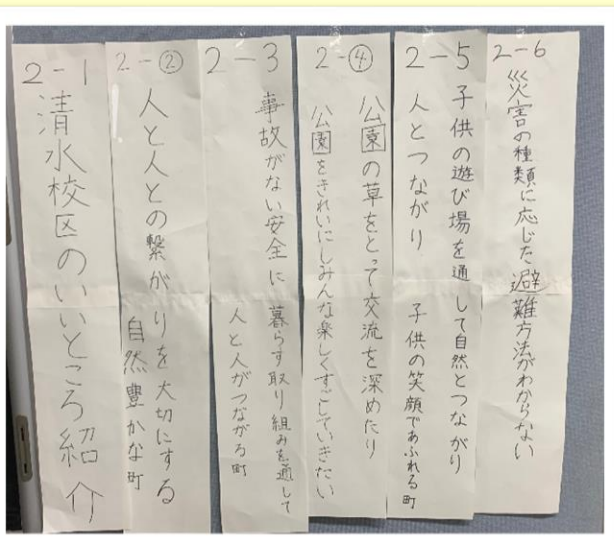 2-1
清水校区のいいところ紹介
2-②
人と人との繋がりを大切にする
自然豊かな町
2-3
事故がない安全に暮らす取り組みを通して
人と人がつながる町
2-④
公園の草をとって交流を深めたり
公園をきれいにしみんな楽しくすごしていきたい
2-5
子供の遊び場を通して自然とつながり
人とつながり 子供の笑顔であふれる町
2-6
災害の種類に応じた避難方法がわからない